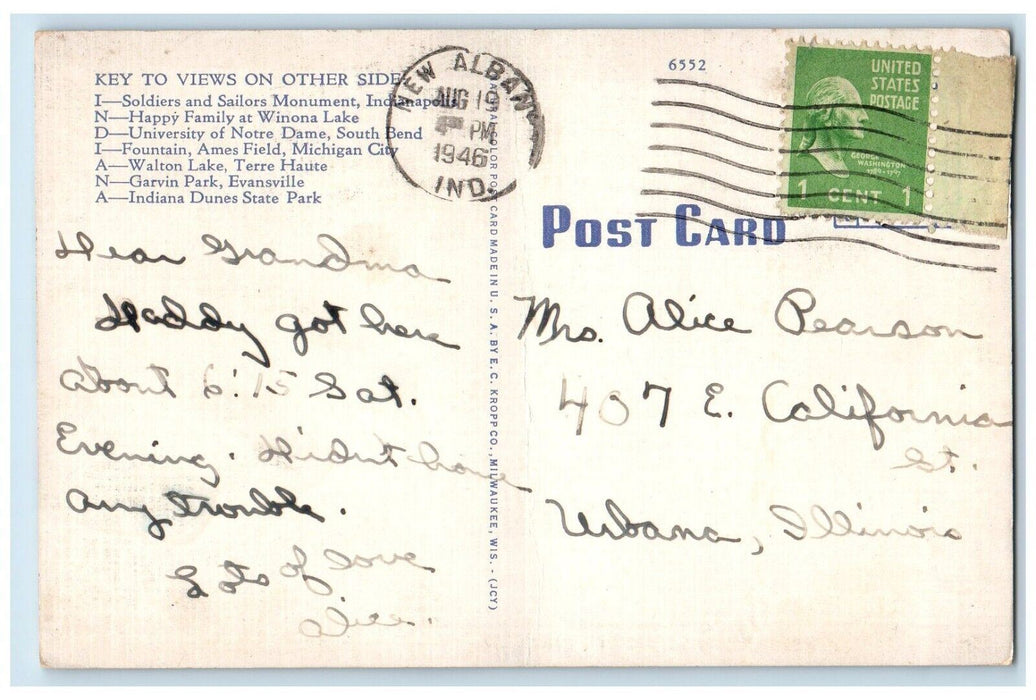 KEY TO VIEWS ON OTHER SIDE
I—Soldiers and Sailors Monument, Indianapolis
N—Happy Family at Winona Lake
D—University of Notre Dame, South Bend
I—Fountain, Ames Field, Michigan City
A—Walton Lake, Terre Haute
N—Garvin Park, Evansville
A—Indiana Dunes State Park
Dear Grandma
Daddy got here
about 6:15 Sat.
Evening. Didn't have
any trouble.
Lots of love
Alice.
NEW ALBANY
AUG 19
4 PM
1946
IND.
COLOR POST CARD MADE IN U. S. A. BY E. C. KROPP CO., MILWAUKEE, WIS. - (JCY)
6552
UNITED
STATES
POSTAGE
GEORGE
WASHINGTON
1789-1797
1 CENT 1
POST CARD
Mrs. Alice Pearson
407 E. California
St.
Urbana, Illinois